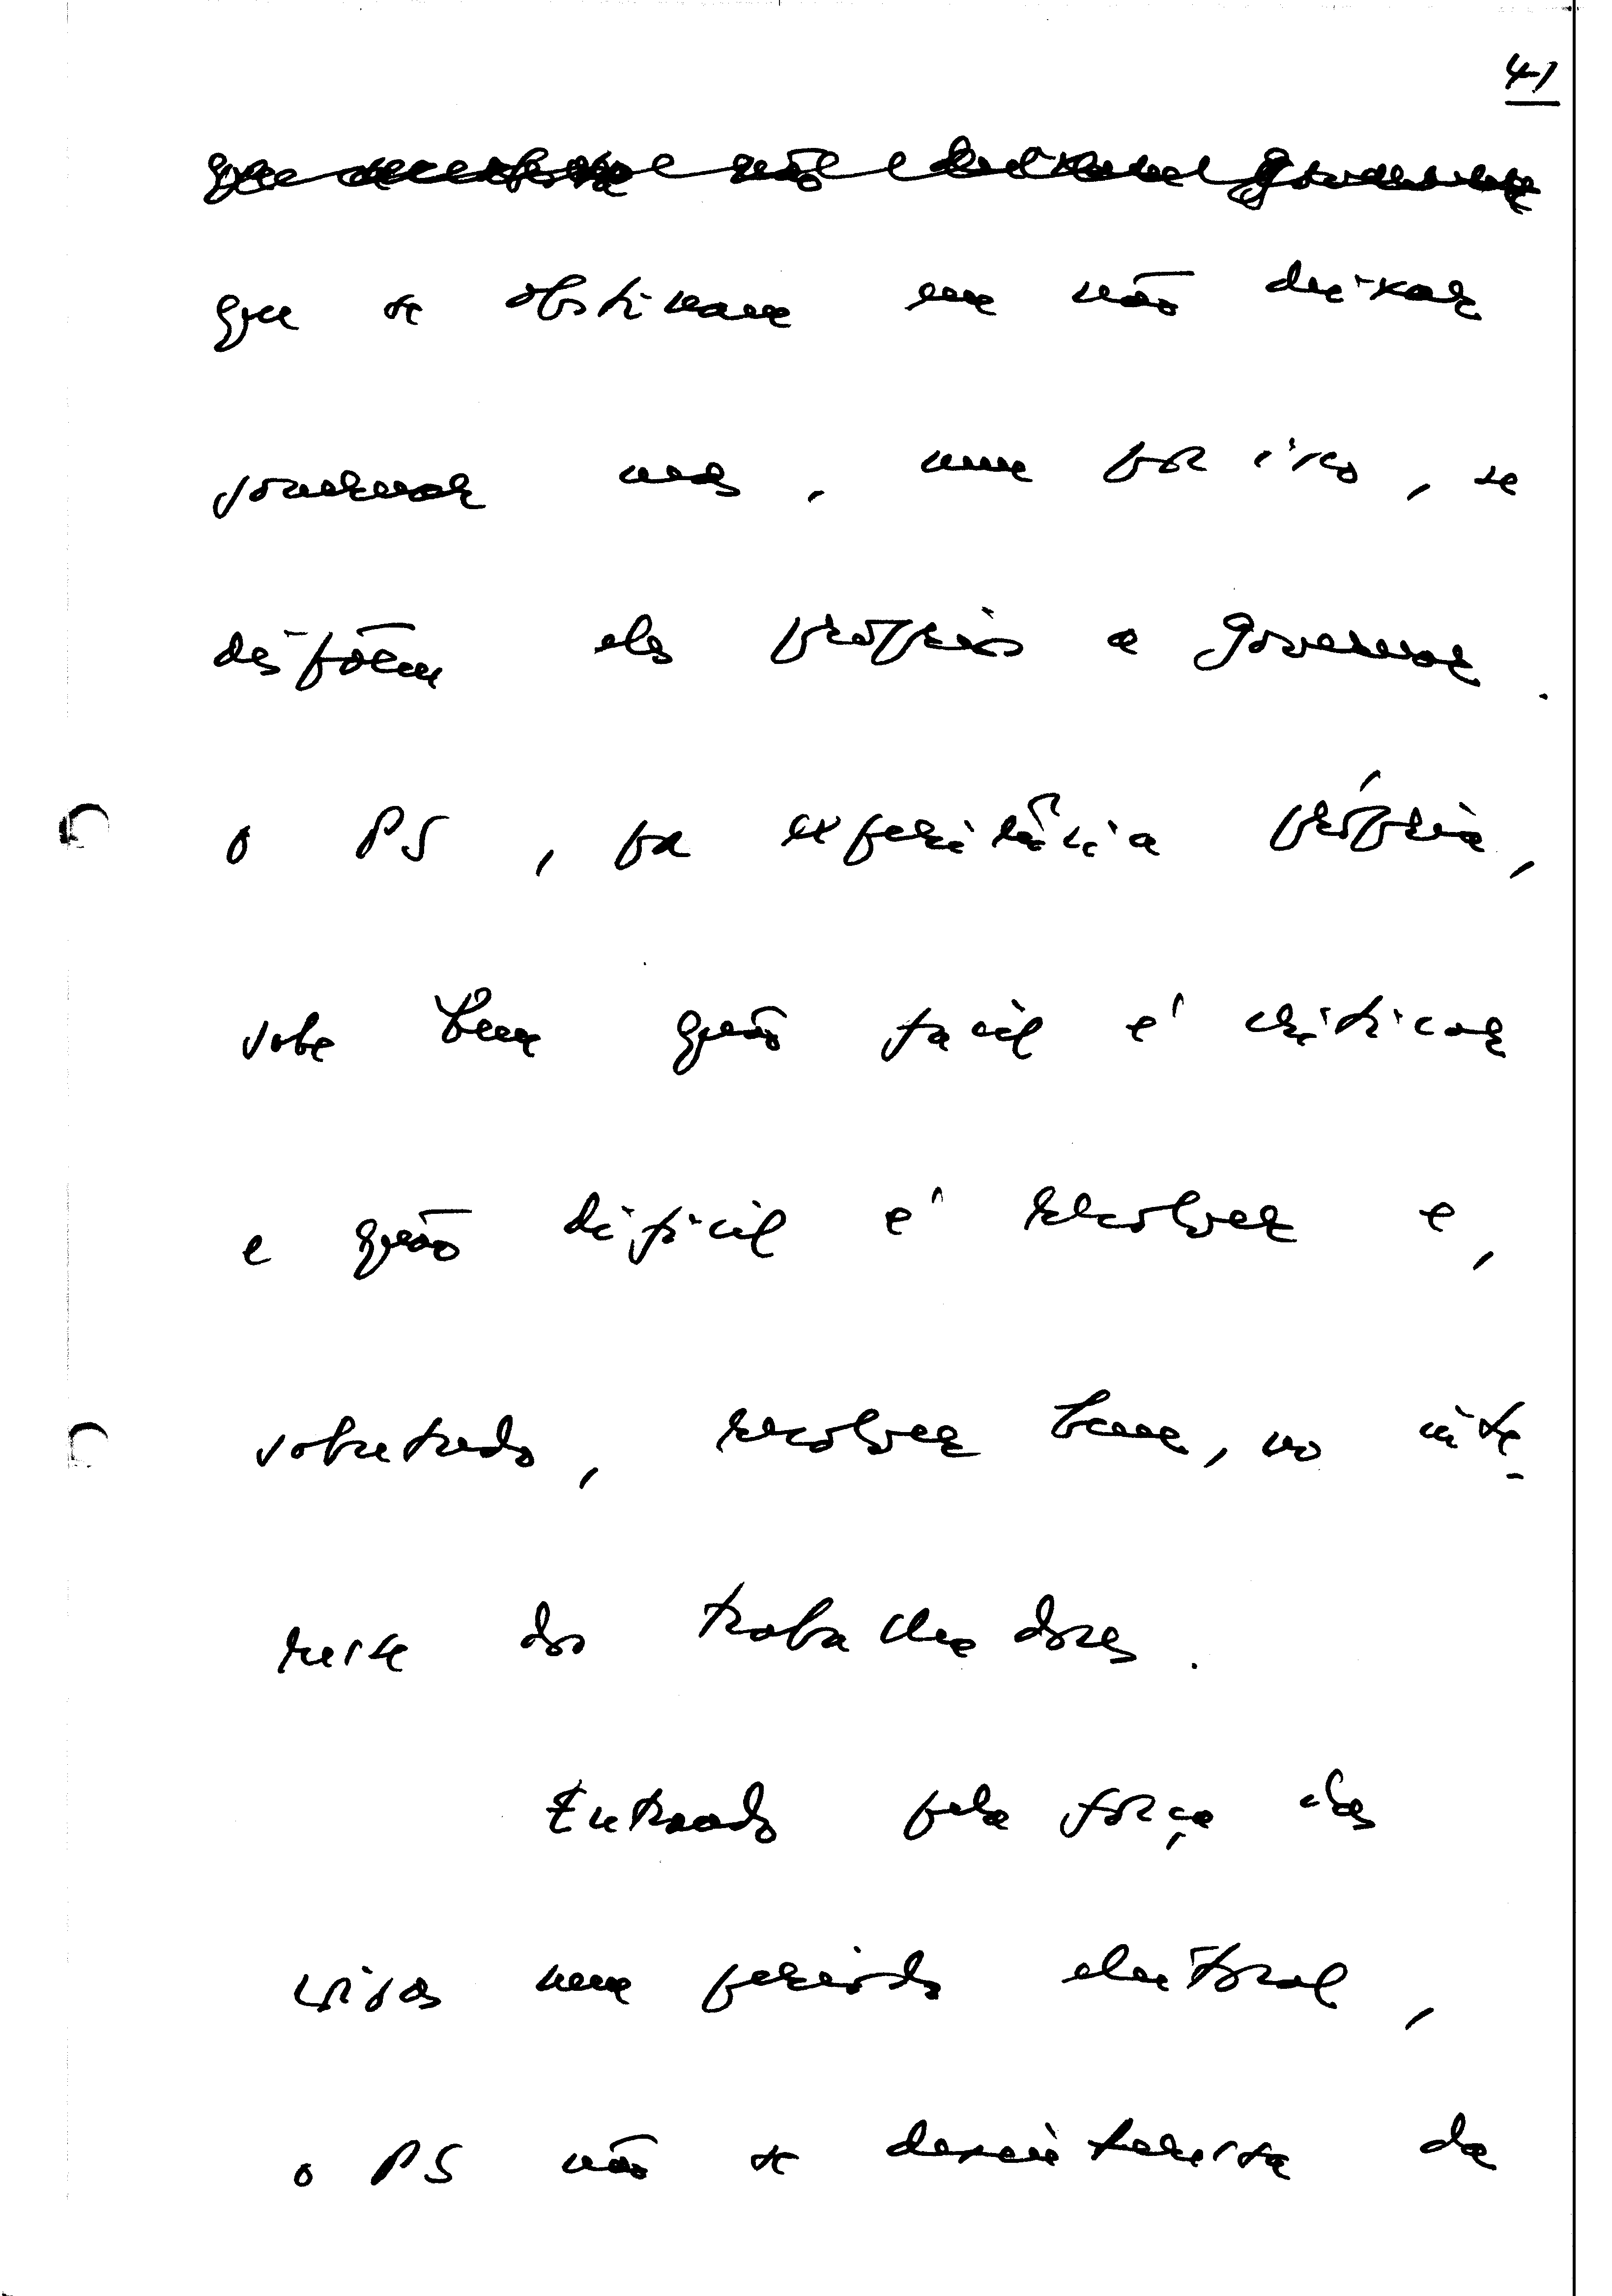 41
que se obstinam em não deixar
governar mas, nem por isso, se
dispõem eles próprios a governar.
O PS, por experiência própria,
sabe bem quão fácil é criticar
e quão difícil é resolver e,
sobretudo, resolver bem, no inte-
resse dos trabalhadores.
Entrado pela força das
coisas num período eleitoral,
o PS não se desinteressa da